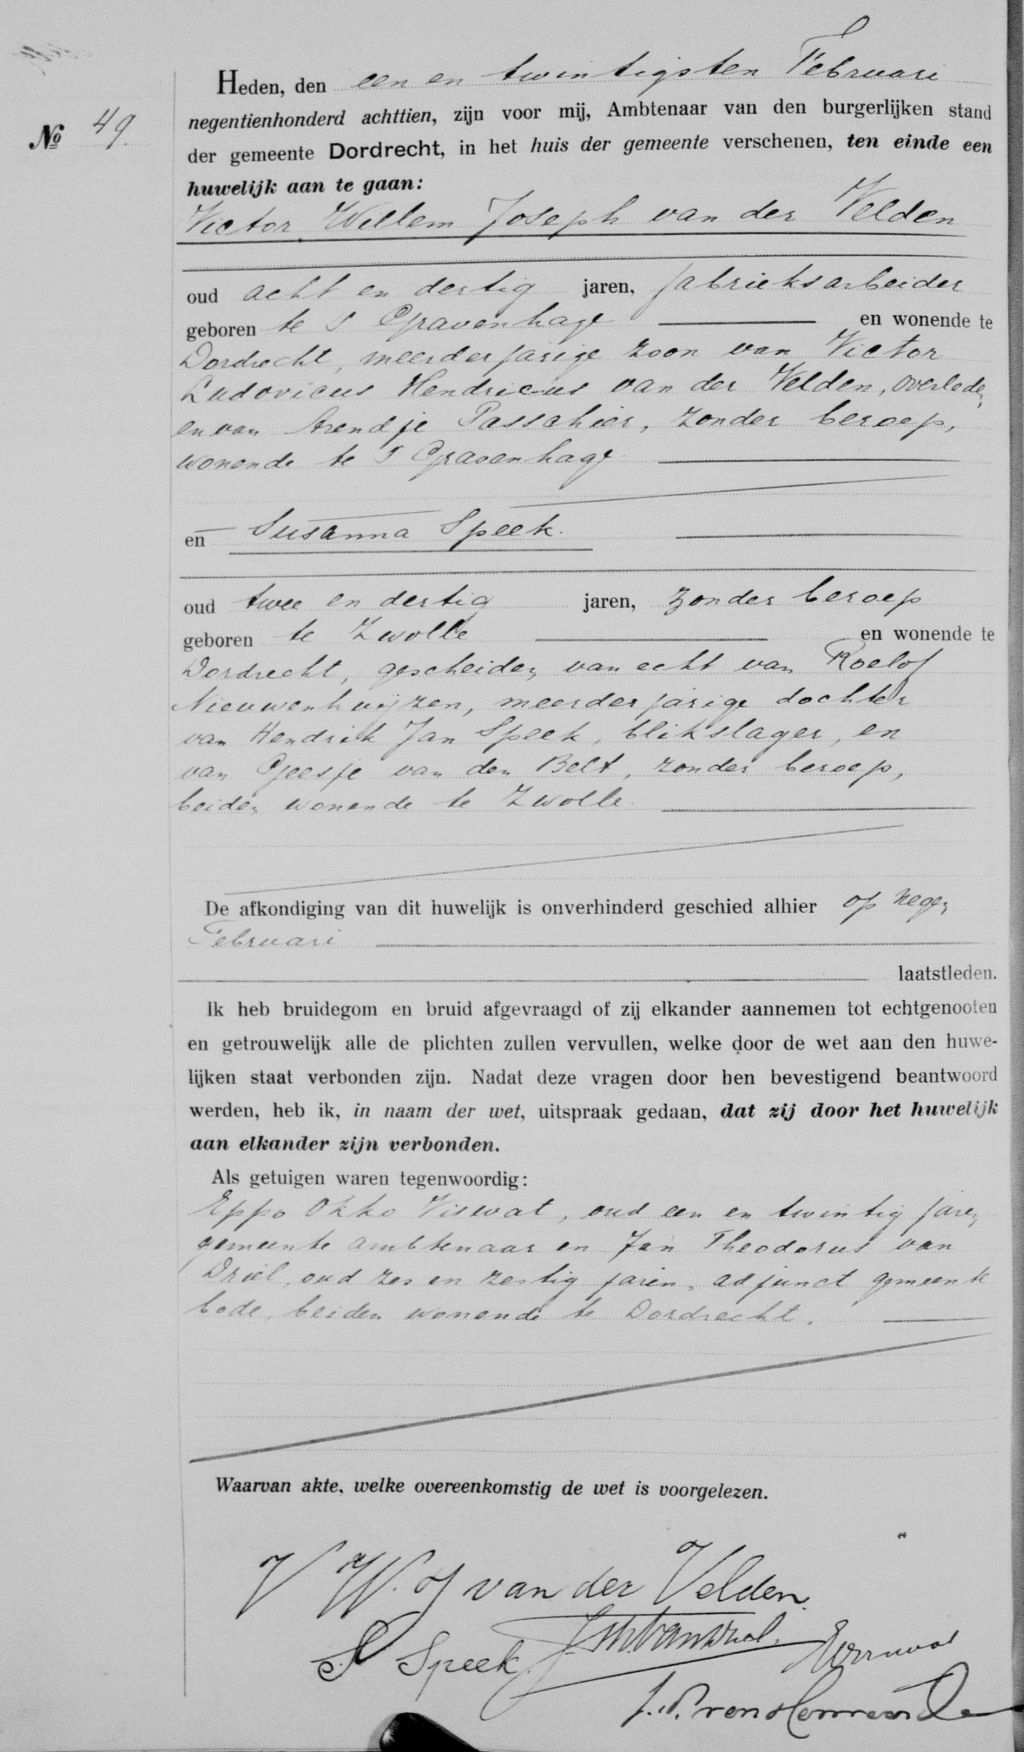 Heden, den een en twintigsten Februari
No 49. negentienhonderd achttien, zijn voor mij, Ambtenaar van den burgerlijken stand
der gemeente Dordrecht, in het huis der gemeente verschenen, ten einde een
huwelijk aan te gaan:
Victor Willem Joseph van der Velden
oud acht en dertig jaren, fabrieksarbeider
geboren te s Gravenhage en wonende te
Dordrecht, meerderjarige zoon van Victor
Ludovicus Hendricus van der Velden, overleden,
en van Arendje Passahier, zonder beroep,
wonende te s Gravenhage
en Susanna Speek.
oud twee en dertig jaren, zonder beroep
geboren te Zwolle en wonende te
Dordrecht, gescheiden van echt van Roelof
Nieuwenhuijzen, meerderjarige dochter
van Hendrik Jan Speek, blikslager, en
van Geesje van den Belt, zonder beroep,
beiden wonende te Zwolle
De afkondiging van dit huwelijk is onverhinderd geschied alhier op negen
Februari
laatstleden.
Ik heb bruidegom en bruid afgevraagd of zij elkander aannemen tot echtgenooten
en getrouwelijk alle de plichten zullen vervullen, welke door de wet aan den huwe-
lijken staat verbonden zijn. Nadat deze vragen door hen bevestigend beantwoord
werden, heb ik, in naam der wet, uitspraak gedaan, dat zij door het huwelijk
aan elkander zijn verbonden.
Als getuigen waren tegenwoordig:
Eppo Okko Viswat, oud een en twintig jaren,
gemeente ambtenaar en Jan Theodorus van
Driel, oud zes en zestig jaren, adjunct gemeente
bode, beiden wonende te Dordrecht.
Waarvan akte, welke overeenkomstig de wet is voorgelezen.
V W. J van der Velden.
S Speek